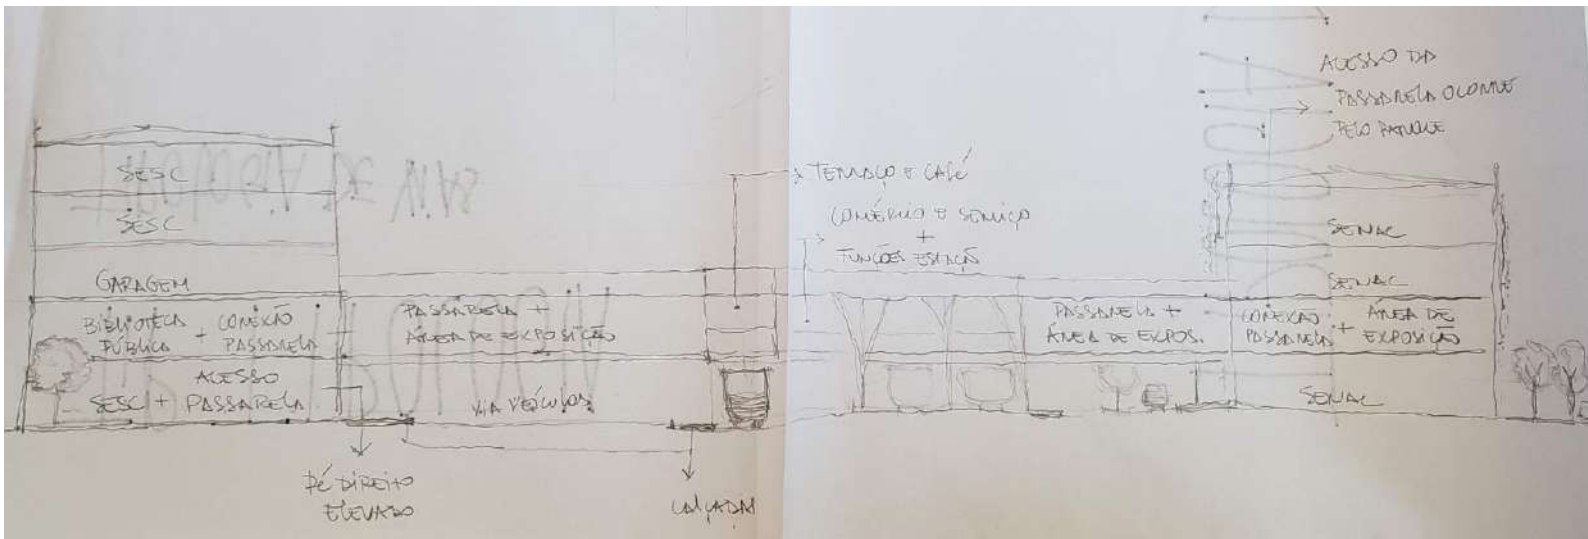 SESC
SESC
GARAGEM
BIBLIOTECA
PÚBLICA
+
CONEXÃO
PASSARELA
ACESSO
SESC + PASSARELA
PASSARELA +
ÁREA DE EXPOSIÇÃO
VIA VEÍCULOS
PÉ DIREITO
ELEVADO
CALÇADAS
TERRAÇO E CAFÉ
COMÉRCIO E SERVIÇO
+
FUNÇÕES ESTAÇÃO
PASSARELA +
ÁREA DE EXPOS.
ACESSO DA
PASSARELA OCORRE
PELO PARQUE
SENAC
SENAC
CONEXÃO
PASSARELA
+
ÁREA DE
EXPOSIÇÃO
SENAC